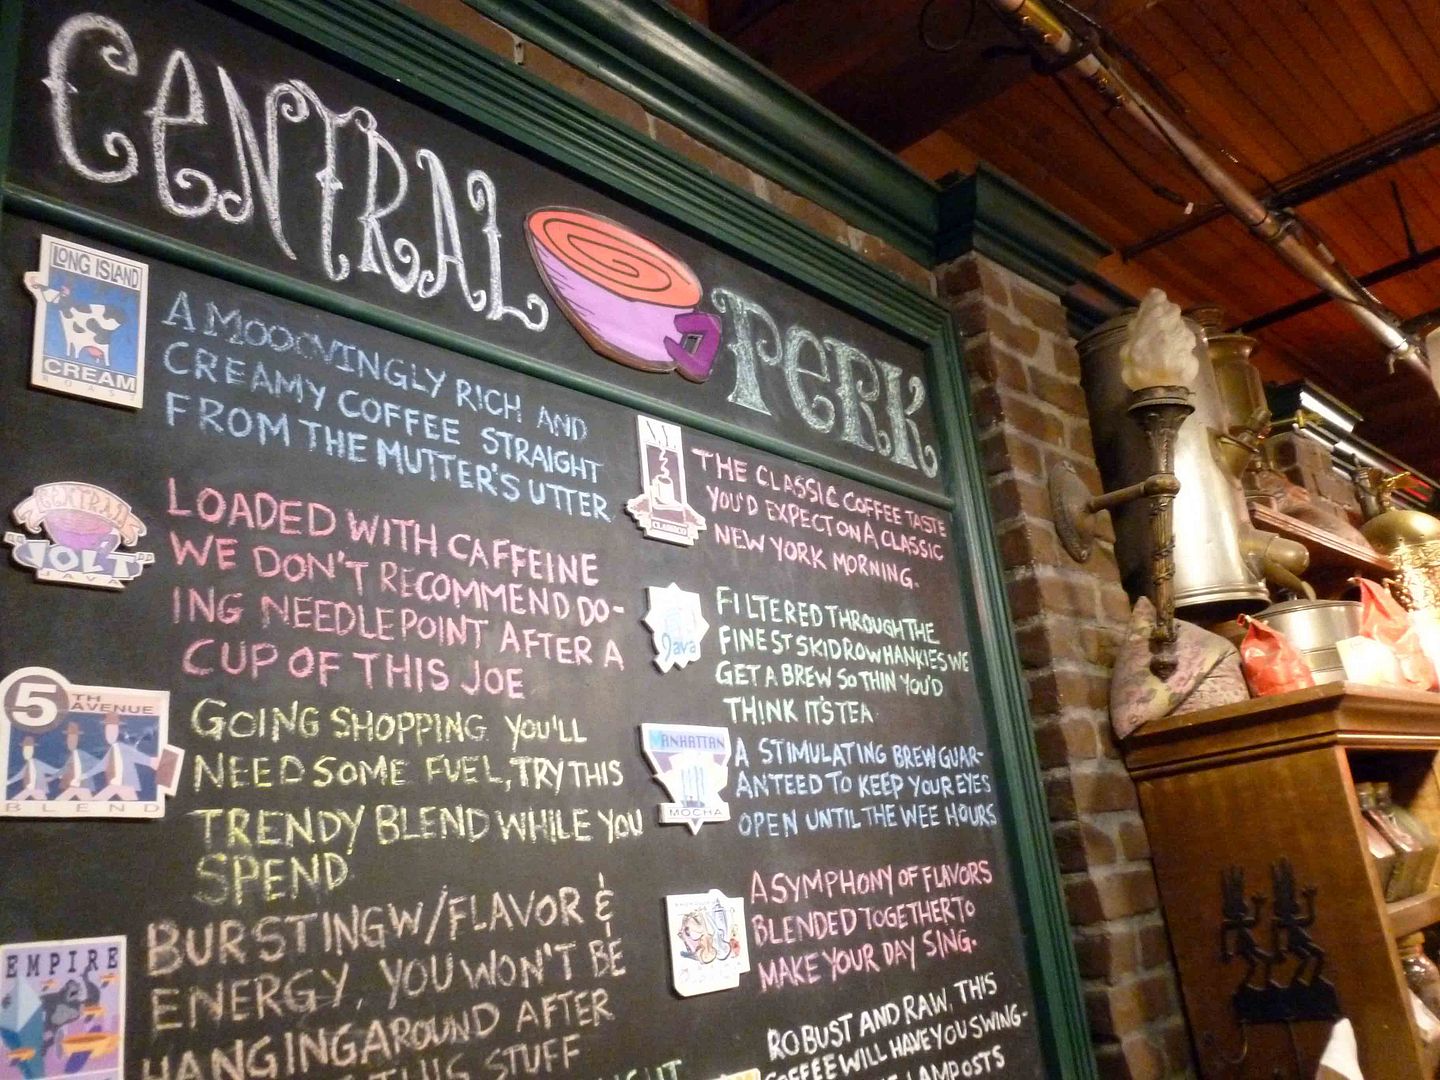 CENTRAL PERK
LONG ISLAND
CREAM
ROAST
A MOOOVINGLY RICH AND
CREAMY COFFEE STRAIGHT
FROM THE MUTTER'S UTTER
CENTRAL
"JOLT"
JAVA
LOADED WITH CAFFEINE
WE DON'T RECOMMEND DO-
ING NEEDLEPOINT AFTER A
CUP OF THIS JOE
5TH
AVENUE
BLEND
GOING SHOPPING YOU'LL
NEED SOME FUEL, TRY THIS
TRENDY BLEND WHILE YOU
SPEND
EMPIRE
BURSTING W/FLAVOR &
ENERGY, YOU WON'T BE
HANGING AROUND AFTER
THIS STUFF
N.Y.
CLASSICO
THE CLASSIC COFFEE TASTE
YOU'D EXPECT ON A CLASSIC
NEW YORK MORNING.
Java
FILTERED THROUGH THE
FINEST SKID ROW HANKIES WE
GET A BREW SO THIN YOU'D
THINK IT'S TEA
MANHATTAN
MOCHA
A STIMULATING BREW GUAR-
ANTEED TO KEEP YOUR EYES
OPEN UNTIL THE WEE HOURS
A SYMPHONY OF FLAVORS
BLENDED TOGETHER TO
MAKE YOUR DAY SING.
ROBUST AND RAW, THIS
COFFEE WILL HAVE YOU SWING-
LAMPOSTS